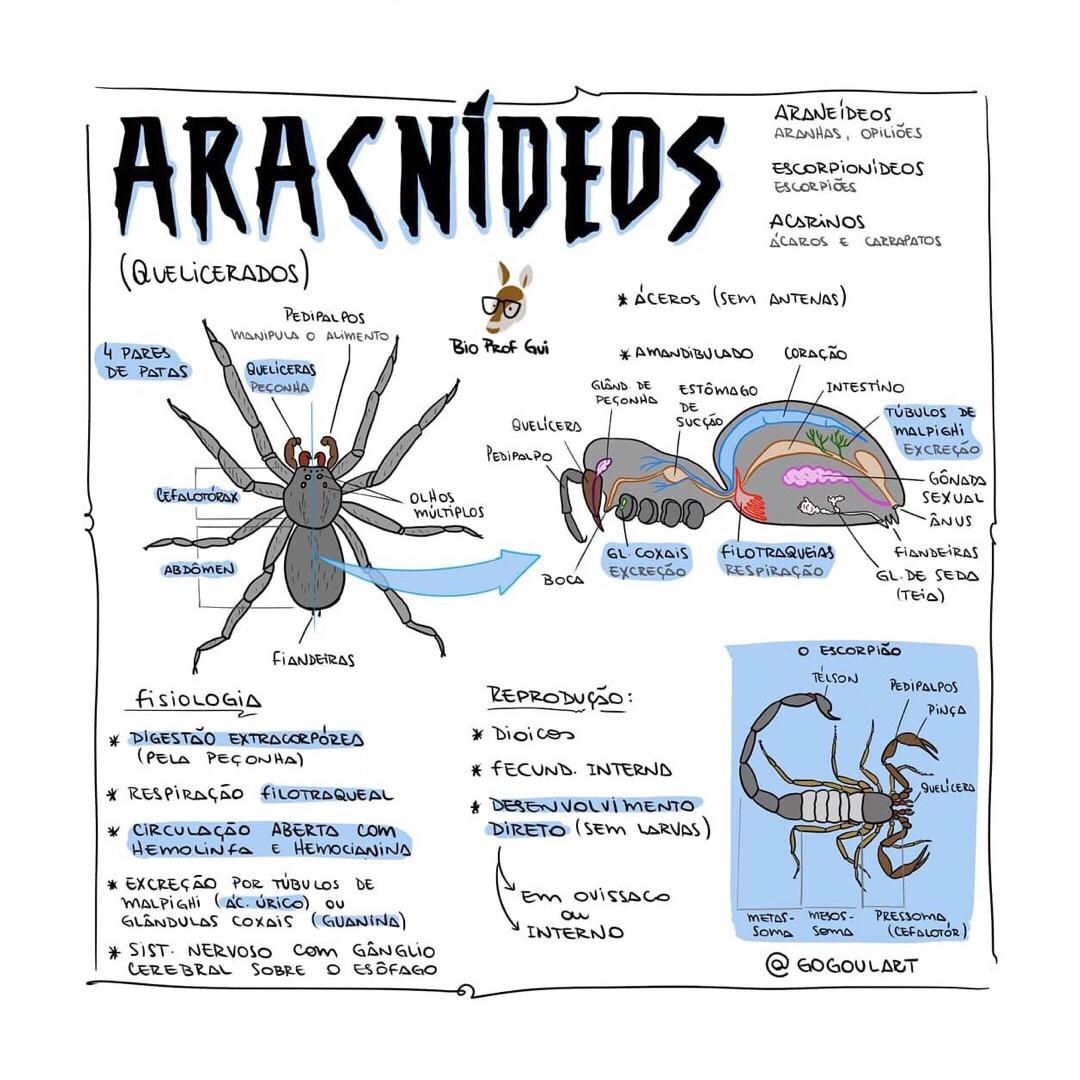 ARACNÍDEOS
(QUELICERADOS)
ARANEÍDEOS
ARANHAS, OPILIÕES
ESCORPIONÍDEOS
ESCORPIÕES
ACARINOS
ÁCAROS E CARRAPATOS
Bio Prof Gui
* ÁCEROS (SEM ANTENAS)
* AMANDIBULADO
4 PARES
DE PATAS
PEDIPALPOS
MANIPULA O ALIMENTO
QUELÍCERAS
PEÇONHA
CEFALOTÓRAX
OLHOS
MÚLTIPLOS
ABDÔMEN
FIANDEIRAS
CORAÇÃO
GLÂND. DE
PEÇONHA
ESTÔMAGO
DE
SUCÇÃO
INTESTINO
TÚBULOS DE
MALPIGHI
EXCREÇÃO
QUELÍCERA
PEDIPALPO
GÔNADA
SEXUAL
ÂNUS
FIANDEIRAS
GL. DE SEDA
(TEIA)
GL. COXAIS
EXCREÇÃO
FILOTRAQUEIAS
RESPIRAÇÃO
BOCA
FISIOLOGIA
* DIGESTÃO EXTRACORPÓREA
(PELA PEÇONHA)
* RESPIRAÇÃO FILOTRAQUEAL
* CIRCULAÇÃO ABERTA COM
HEMOLINFA E HEMOCIANINA
* EXCREÇÃO POR TÚBULOS DE
MALPIGHI (ÁC. ÚRICO) OU
GLÂNDULAS COXAIS (GUANINA)
* SIST. NERVOSO COM GÂNGLIO
CEREBRAL SOBRE O ESÔFAGO
REPRODUÇÃO:
* DIOICOS
* FECUND. INTERNA
* DESENVOLVIMENTO
DIRETO (SEM LARVAS)
EM OVISSACO
OU
INTERNO
O ESCORPIÃO
TÉLSON
PEDIPALPOS
PINÇA
QUELÍCERA
METAS-
SOMA
MESOS-
SOMA
PRESSOMA
(CEFALOTÓR)
@GOGOULART